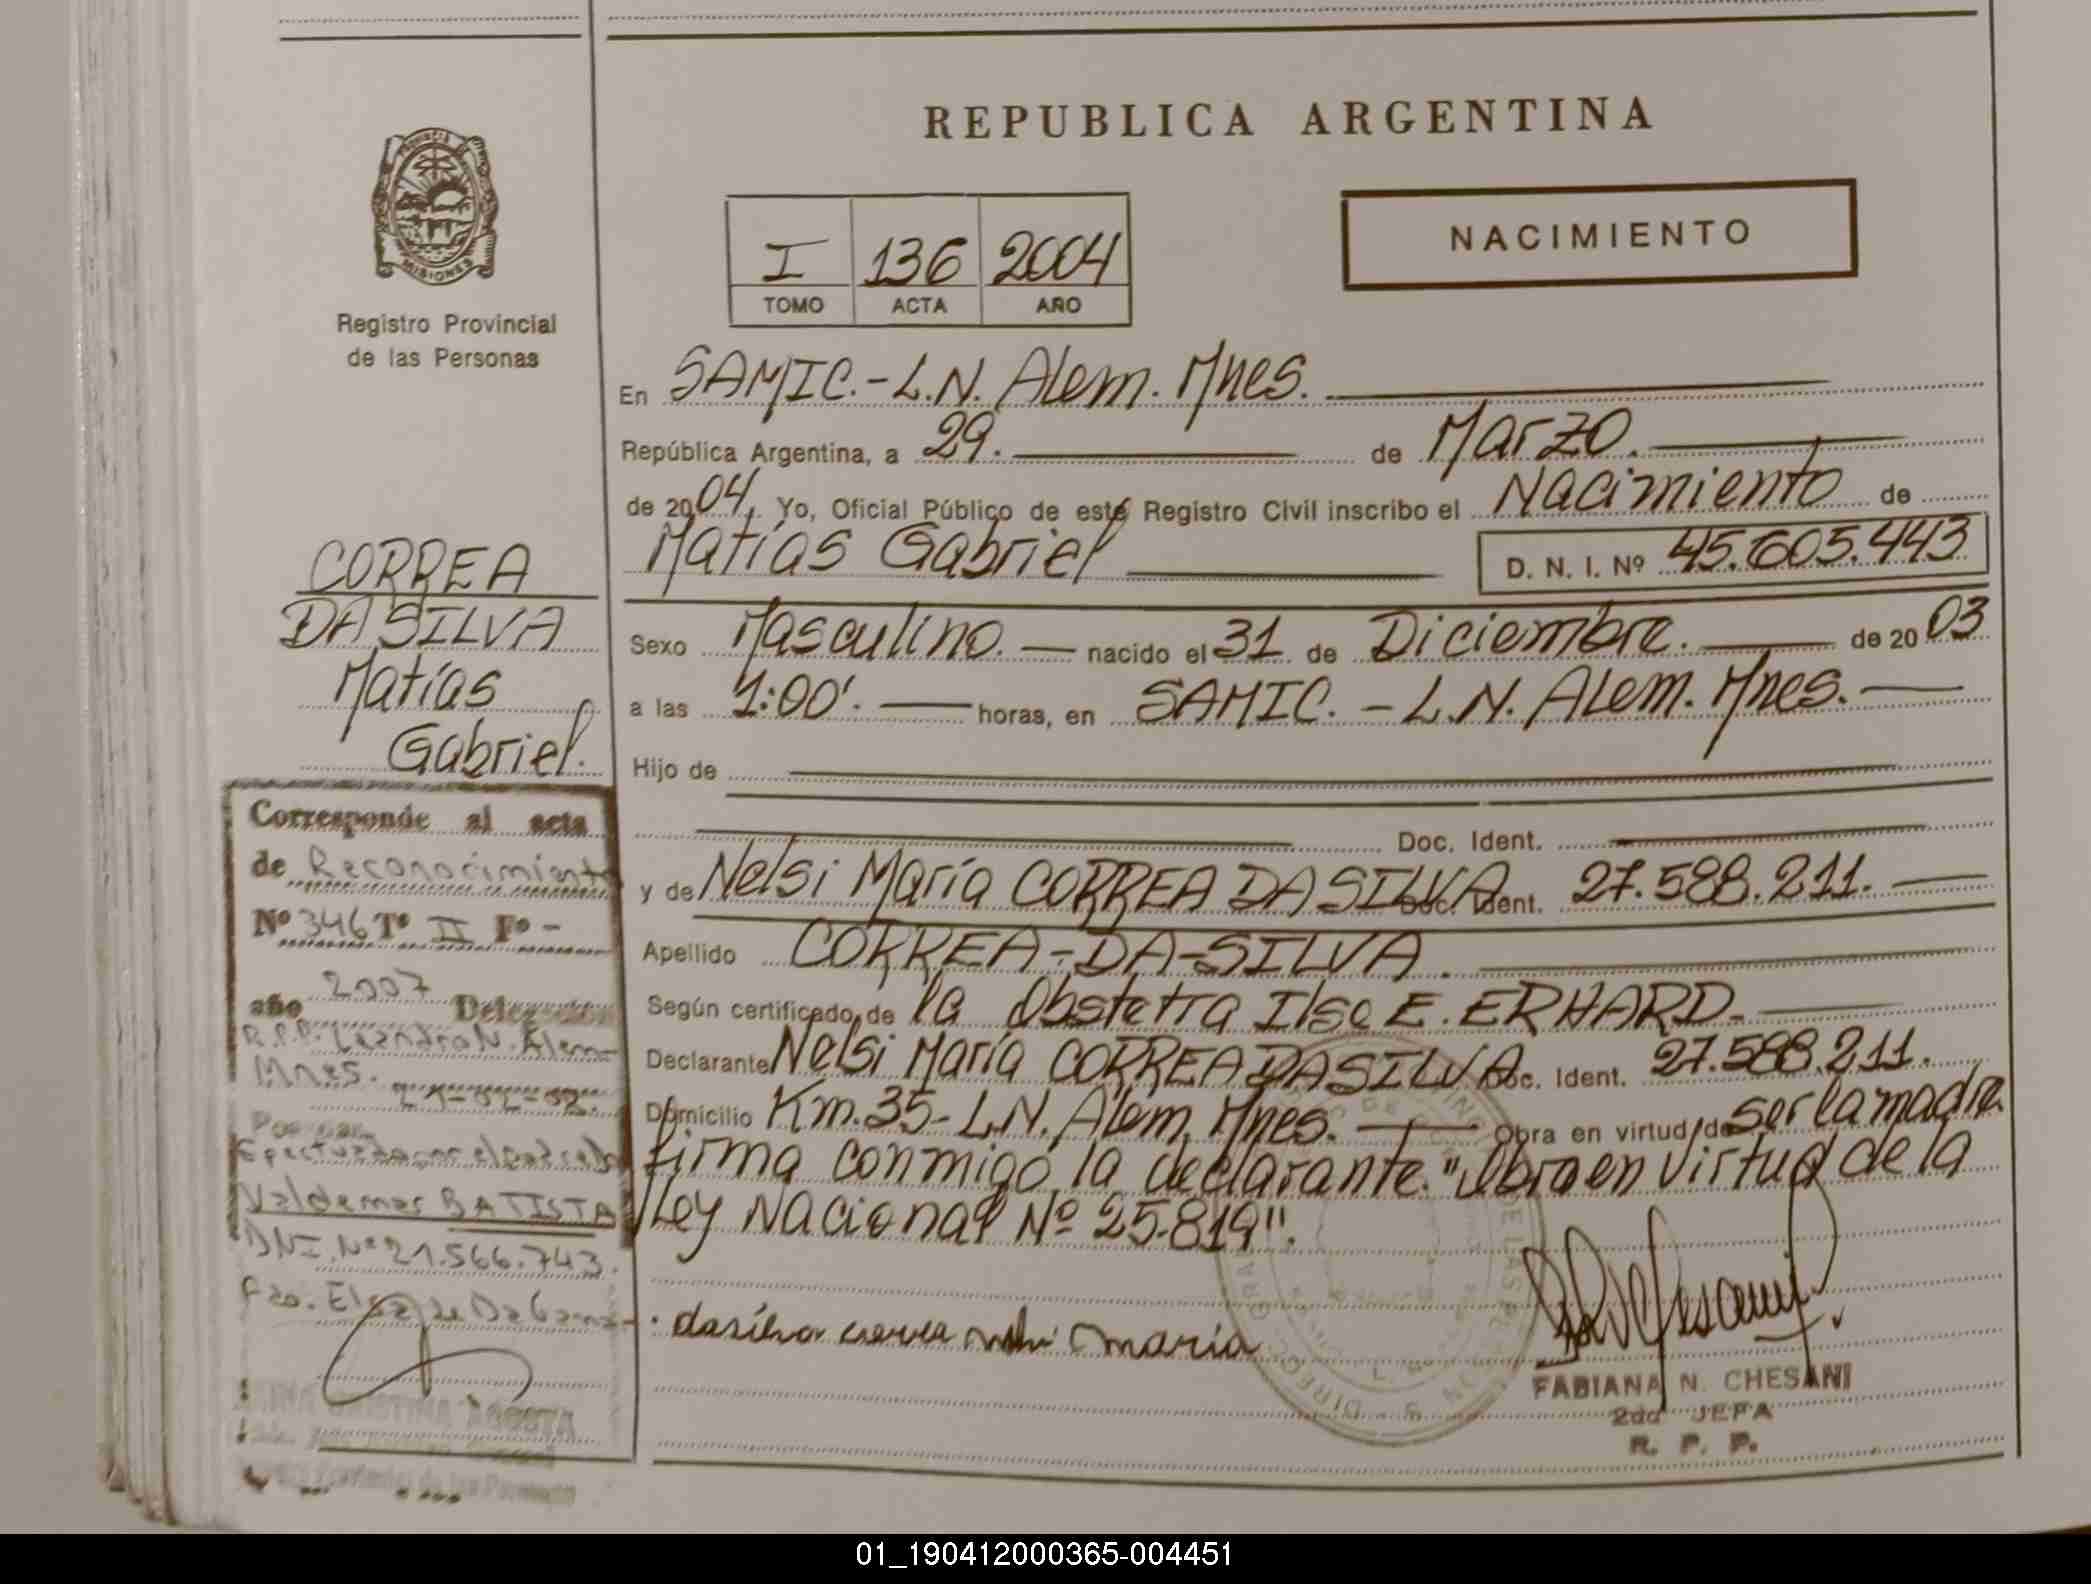 REPUBLICA ARGENTINA
PROVINCIA DE
MISIONES
Registro Provincial
de las Personas
I 136 2004
TOMO ACTA AÑO
NACIMIENTO
En SAMIC.-L.N. Alem. Mnes.
República Argentina, a 29. de Marzo.
de 2004. Yo, Oficial Público de este Registro Civil inscribo el Nacimiento de
Matías Gabriel D. N. I. Nº 45.605.443
Sexo Masculino. nacido el 31 de Diciembre. de 2003
a las 1:00'. horas, en SAMIC. - L.N. Alem. Mnes.
Hijo de
Doc. Ident.
y de Nelsi María CORREA DA SILVA Doc. Ident. 27.588.211.
Apellido CORREA-DA-SILVA.
Según certificado de la Obstetra Ilse E. ERHARD.
Declarante Nelsi María CORREA DA SILVA Doc. Ident. 27.588.211.
Domicilio Km.35-L.N. Alem. Mnes. Obra en virtud de ser la madre
firma conmigo la declarante. "Obra en virtud de la
Ley Nacional Nº 25.819".
dasilva correa nelsi maria
FABIANA N. CHESANI
2da JEFA
R. P. P.
CORREA
DA SILVA
Matías
Gabriel.
Corresponde al acta
de Reconocimiento
Nº 346 Tº II Fº -
año 2007 Delegación
R.P.P. Leandro N. Alem
Mnes.
Valdemar BATISTA
DNI. Nº 21.566.743.
CRISTINA ACOSTA
de las Personas
01_190412000365-004451